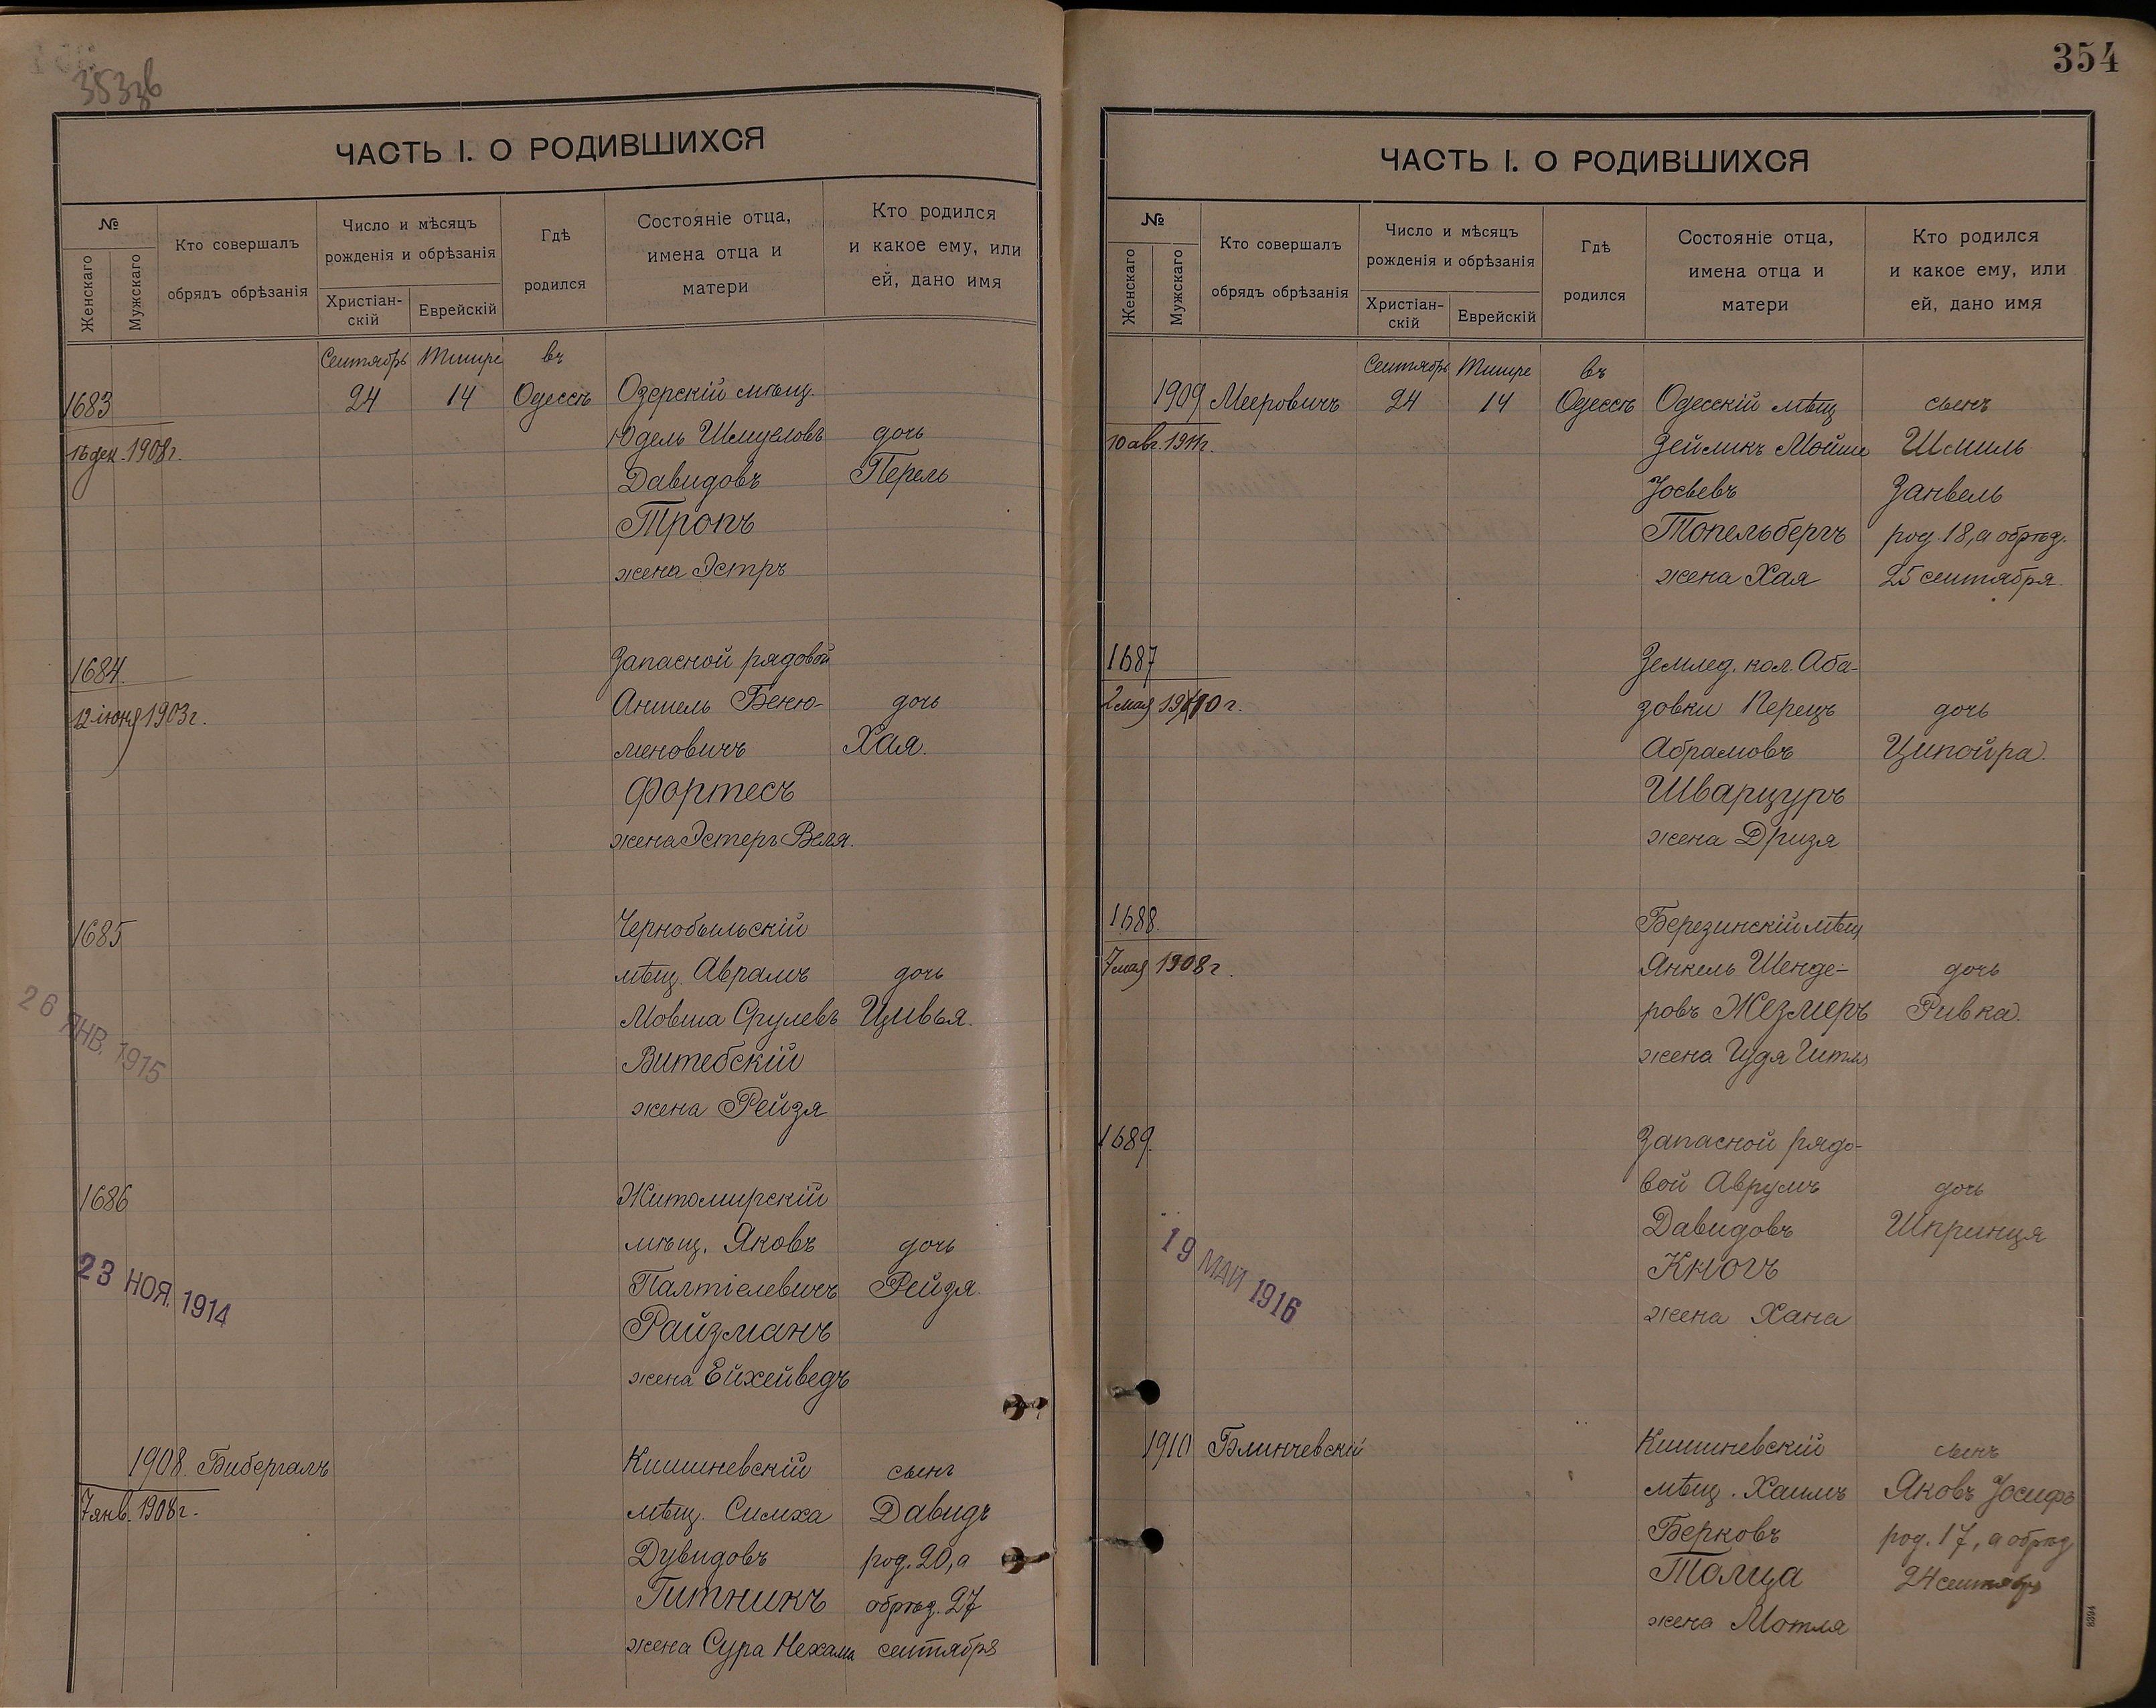 353зв
ЧАСТЬ I. О РОДИВШИХСЯ
№
Женскаго
Мужскаго
Кто совершалъ
обрядъ обрѣзанія
Число и мѣсяцъ
рожденія и обрѣзанія
Христіан-
скій
Еврейскій
Гдѣ
родился
Состояніе отца,
имена отца и
матери
Кто родился
и какое ему, или
ей, дано имя
Сентябрь Тишре въ
1683 24 14 Одессѣ Озерскій мѣщ.
Юдель Шмуеловъ дочь
дек. 1908г.
Давидовъ Перель
Тропъ
жена Эстръ
1684. Запасной рядовой
12 іюня 1903г. Аншель Беню- дочь
меновичъ Хая.
Фортесъ
жена Эстеръ Веля.
1685 Чернобыльскій
мѣщ. Аврамъ дочь
Мовша Срулевъ Цивья.
26 ЯНВ. 1915
Витебскій
жена Рейзя
1686 Житомирскій
мѣщ. Яковъ дочь
23 НОЯ. 1914
Палтіелевичъ Рейзя.
Райзманъ
жена Ейхейведъ
1908. Бибергалъ Кишиневскій сынъ
7 янв. 1908г. мѣщ. Симха Давидъ
Дувидовъ род. 20, а
Гитникъ обрѣз. 27
жена Сура Нехама сентября
354
ЧАСТЬ I. О РОДИВШИХСЯ
№
Женскаго
Мужскаго
Кто совершалъ
обрядъ обрѣзанія
Число и мѣсяцъ
рожденія и обрѣзанія
Христіан-
скій
Еврейскій
Гдѣ
родился
Состояніе отца,
имена отца и
матери
Кто родился
и какое ему, или
ей, дано имя
Сентябрь Тишре въ
1909 Мееровичъ 24 14 Одессѣ Одесскій мѣщ сынъ
10 авг. 1911г. Зейликъ Мойше Шмиль
Іосьевъ Занвель
Топельбергъ род. 18, а обрѣз.
жена Хая 25 сентября.
1687 Землед. кол. Аба-
2 мая 1910г. зовки Перецъ дочь
Абрамовъ Ципойра.
Шварцуръ
жена Дризя
1688. Березинскій мѣщ
7 мая 1908г. Янкель Шенде- дочь
ровъ Жезмеръ Ривка.
жена Гудя Гитля
1689. Запасной рядо-
вой Аврумъ дочь
Давидовъ Шпринця
19 МАЙ 1916
Кногъ
жена Хана
1910 Блинчевскій Кишиневскій сынъ
мѣщ. Хаимъ Яковъ Іосифъ
Берковъ род. 17, а обрѣз
Толца 24 сентябр
жена Мотля
8394